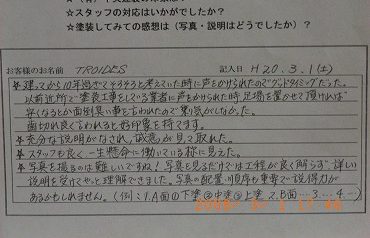 ☆スタッフの対応はいかがでしたか?
☆塗装してみての感想は(写真・説明はどうでしたか)?
お客様のお名前 TROIDES 記入日 H20.3.1(土)
★建ってから10年過ぎてそろそろと考えていた時に声をかけられたのでグッドタイミングだった。
以前近所で塗装工事をしている業者に声をかけられた時、足場を置かせて頂ければ
安くなるとか面倒臭い事を言われたので乗り気がしなかった。
歯切れ良く言われると好印象を持てます。
★充分な説明がなされ、誠意が見て取れた。
★スタッフも良く一生懸命に働いている様に見えた。
★写真を撮るのは難しいですね!写真を見るだけでは工程が良く解らず詳しい
説明を受けてやっと理解できました。写真の配置、順序も重要で説得力が
あるかもしれません。(例:1.A面①下塗②中塗③上塗 2.B面…3.…4…)